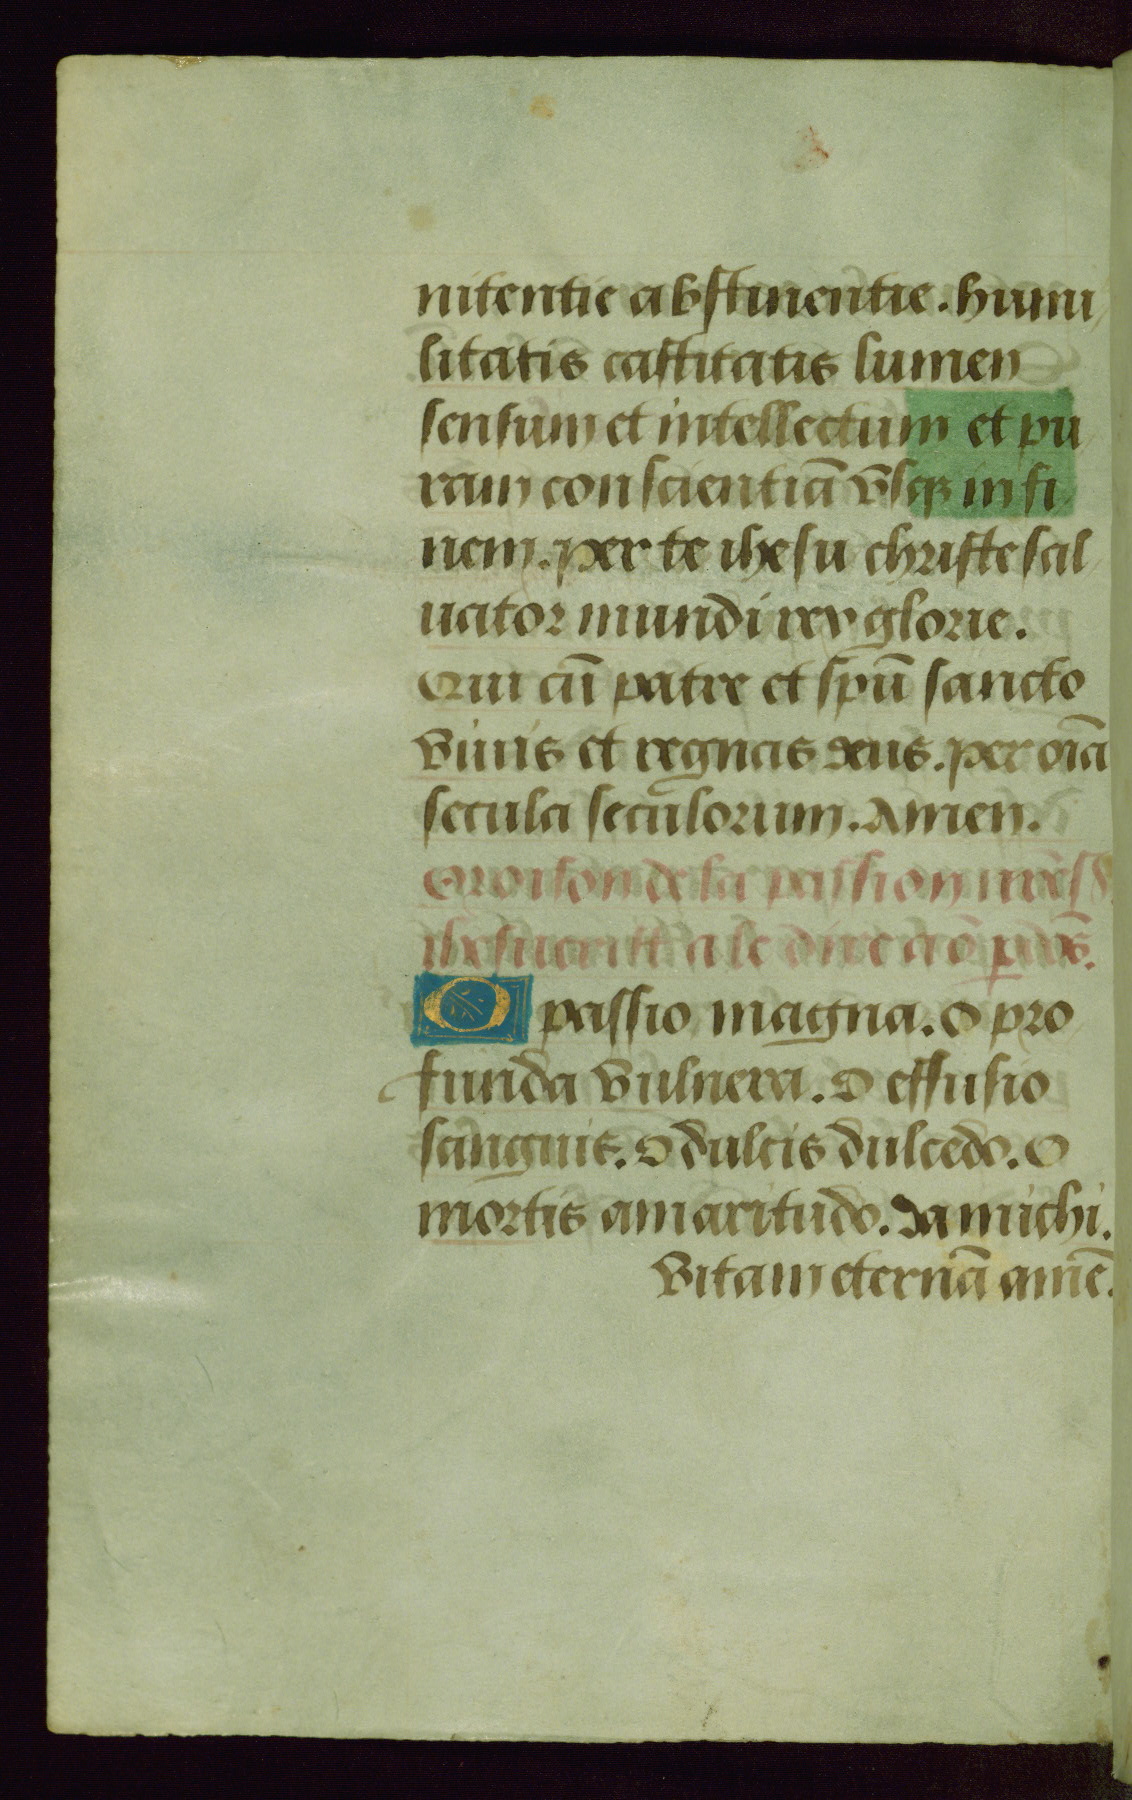 nitentie abstinentie. humi
litatis castitatis lumen
sensum et intellectum et pu
ram conscientiā v̄sq in fi
nem. per te ihesu christe sal
uator mundi rex glorie.
Qui cū patre et spū sancto
viuis et regnas deus. per oīa
secula seculorum. Amen.
Oroison de la passion
ihesucrist a le dire
O passio magna. O pro
funda vulnera. O effusio
sanguis. O dulcis dulcedo. O
mortis amaritudo. da michi.
vitam eternā amē.